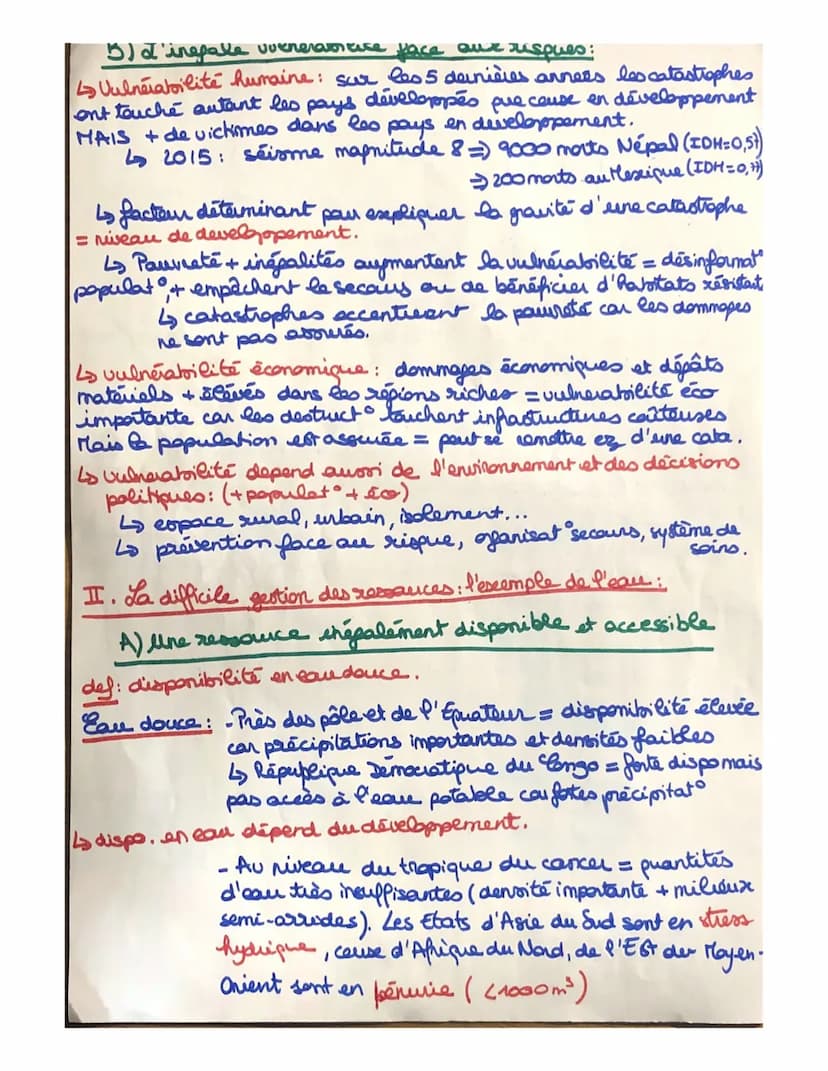 B) L'inégale vulnérabilité face aux risques:
↳ Vulnérabilité humaine: sur les 5 dernières années les catastrophes
ont touché autant les pays développés que ceux en développement
MAIS + de victimes dans les pays en développement.
↳ 2015: séisme magnitude 8 => 9000 morts Népal (IDH=0,57)
=> 200 morts au Mexique (IDH=0,77)
↳ facteur déterminant pour expliquer la gravité d'une catastrophe
= niveau de developpement.
↳ Pauvreté + inégalités augmentent la vulnérabilité = désinformat°
populat°, + empêchent le secours ou de bénéficier d'habitats résistant
↳ catastrophes accentuent la pauvreté car les dommages
ne sont pas assurés.
↳ vulnérabilité économique: dommages économiques et dégâts
matériels + élévés dans les régions riches = vulnerabilité éco
importante car les destruct° touchent infrastructures coûteuses
Mais la population est assurée = peut se remettre ez d'une cata.
↳ vulnerabilité depend aussi de l'environnement et des décisions
politiques: (+ populat° + éco)
↳ espace rural, urbain, isolement...
↳ prévention face au risque, organisat° secours, système de
soins.
II. La difficile gestion des ressources: l'exemple de l'eau:
A) Une ressource inégalement disponible et accessible
def: disponibilité en eau douce.
Eau douce: - Près des pôle et de l'Équateur = disponibilité élevée
car précipitations importantes et densités faibles
↳ République Démocratique du Congo = forte dispo mais
pas accès à l'eau potable car fortes précipitat°
↳ dispo. en eau dépend du développement.
- Au niveau du tropique du cancer = quantités
d'eau très insuffisantes (densité importante + milieux
semi-arrides). Les Etats d'Asie du Sud sont en stress
hydrique, ceux d'Afrique du Nord, de l'Est du Moyen-
Orient sont en pénurie (<1000m³)